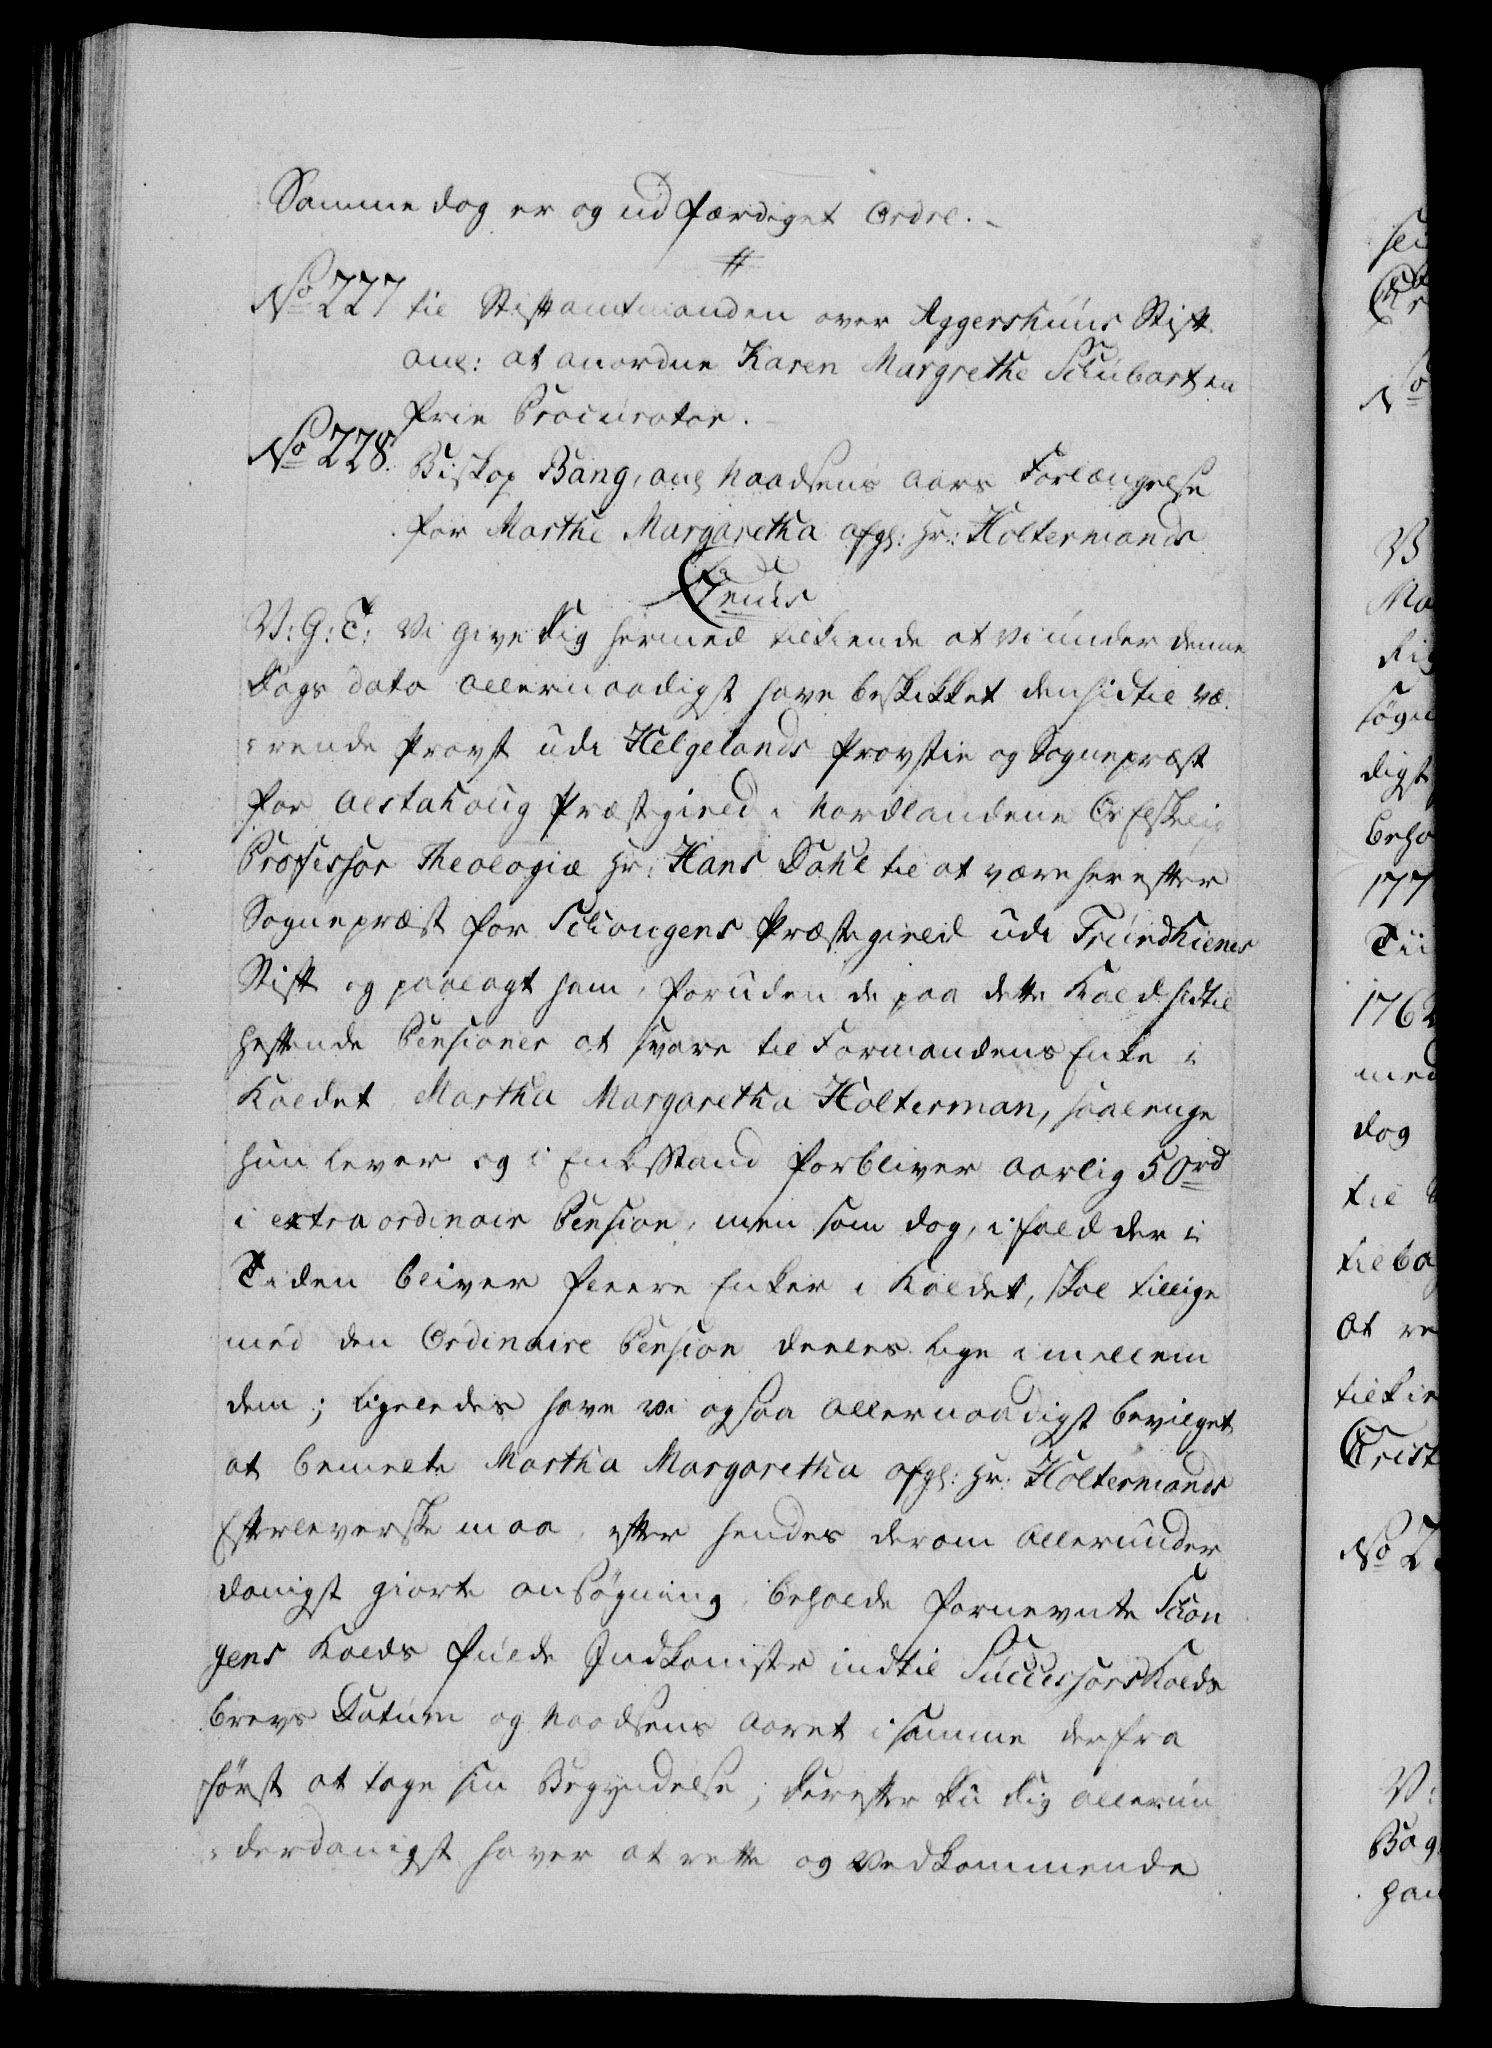 Samme dag er og udfærdiget Ordre.
//
No 227 til Stiftamtmanden over Aggershuus Stift
anl: at anordne Karen Margrethe Schubart en
frie Procurator.
No 228. Biskop Bang, anl Naadsens aars Forlængelse
for Marthe Margaretha afgl: Hr: Holtermands
V: G: T: Vi give dig hermed tilkiende at vi under denne
Dags dato allernaadigst have beskikket den hidtil væ-
rende Provst udi Helgelands Provstie og Sognepræst
for Alstahoug Præstegield i Nordlandene Os Elskelig
Professor Theologiæ Hr: Hans Dahl til at være herefter
Sognepræst for Schougens Præstegield udi Trundhiems
Stift og paalagt ham, foruden de paa dette Kald hidtil
heftende Pensioner at svare til Formandens Enke i
Kaldet Martha Margaretha Holterman, saalenge
hun lever og i Enkestand forbliver aarlig 50rd
i extraordinair Pension, men som dog, ifald der i
Tiden bliver fleere Enker i Kaldet, skal tillige
med den Ordinaire Pension deeles lige imellem
dem; ligeledes have vi ogsaa allernaadigst bevilget
at bemelte Martha Margaretha afgl: Hr: Holtermands
Efterleverske maa, efter hendes derom allerunder
danigst giorte ansøgning, beholde fornevnte Schou
gens Kalds fulde Indkomster indtil Successors Kalds
brevs Datum og Naadsens Aaret i samme derfra
først at tage sin Begyndelse; derefter du dig allerun
-derdanigst haver at rette og Vedkommende